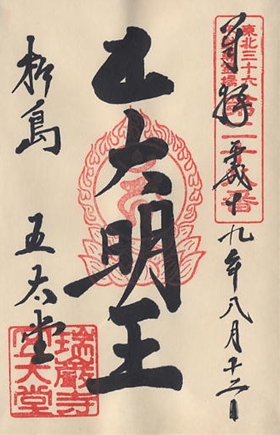 奉拝 平成十九年八月十二日
東北三十六
五大明王
松島 五大堂
瑞巌寺
五大堂